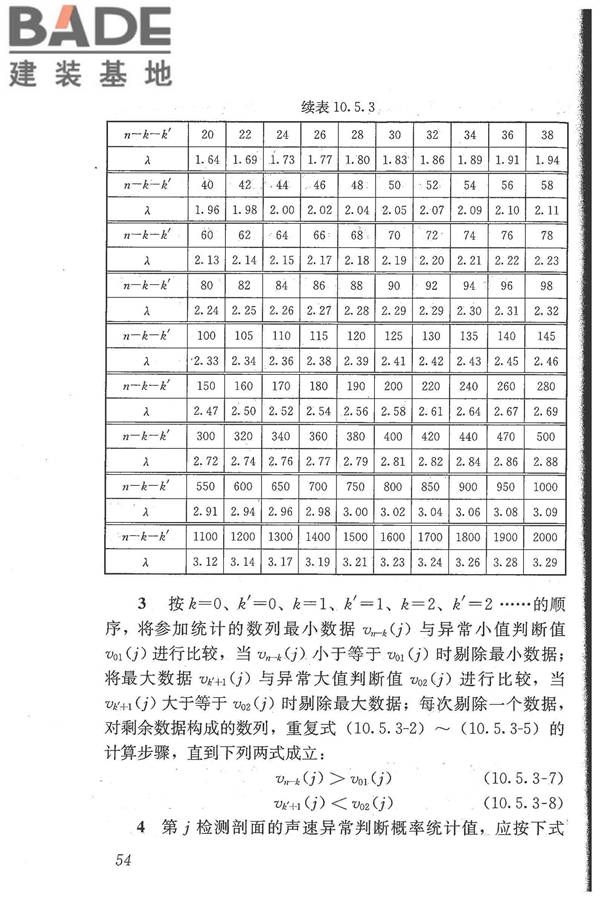 BADE
建装基地
续表10.5.3
n-k-k′ 20 22 24 26 28 30 32 34 36 38
λ 1.64 1.69 1.73 1.77 1.80 1.83 1.86 1.89 1.91 1.94
n-k-k′ 40 42 44 46 48 50 52 54 56 58
λ 1.96 1.98 2.00 2.02 2.04 2.05 2.07 2.09 2.10 2.11
n-k-k′ 60 62 64 66 68 70 72 74 76 78
λ 2.13 2.14 2.15 2.17 2.18 2.19 2.20 2.21 2.22 2.23
n-k-k′ 80 82 84 86 88 90 92 94 96 98
λ 2.24 2.25 2.26 2.27 2.28 2.29 2.29 2.30 2.31 2.32
n-k-k′ 100 105 110 115 120 125 130 135 140 145
λ 2.33 2.34 2.36 2.38 2.39 2.41 2.42 2.43 2.45 2.46
n-k-k′ 150 160 170 180 190 200 220 240 260 280
λ 2.47 2.50 2.52 2.54 2.56 2.58 2.61 2.64 2.67 2.69
n-k-k′ 300 320 340 360 380 400 420 440 470 500
λ 2.72 2.74 2.76 2.77 2.79 2.81 2.82 2.84 2.86 2.88
n-k-k′ 550 600 650 700 750 800 850 900 950 1000
λ 2.91 2.94 2.96 2.98 3.00 3.02 3.04 3.06 3.08 3.09
n-k-k′ 1100 1200 1300 1400 1500 1600 1700 1800 1900 2000
λ 3.12 3.14 3.17 3.19 3.21 3.23 3.24 3.26 3.28 3.29
3 按k=0、k′=0、k=1、k′=1、k=2、k′=2……的顺
序，将参加统计的数列最小数据vn-k(j)与异常小值判断值
v01(j)进行比较，当vn-k(j)小于等于v01(j)时剔除最小数据；
将最大数据vk′+1(j)与异常大值判断值v02(j)进行比较，当
vk′+1(j)大于等于v02(j)时剔除最大数据；每次剔除一个数据，
对剩余数据构成的数列，重复式（10.5.3-2）～（10.5.3-5）的
计算步骤，直到下列两式成立：
vn-k(j)>v01(j) (10.5.3-7)
vk′+1(j)<v02(j) (10.5.3-8)
4 第j检测剖面的声速异常判断概率统计值，应按下式
54